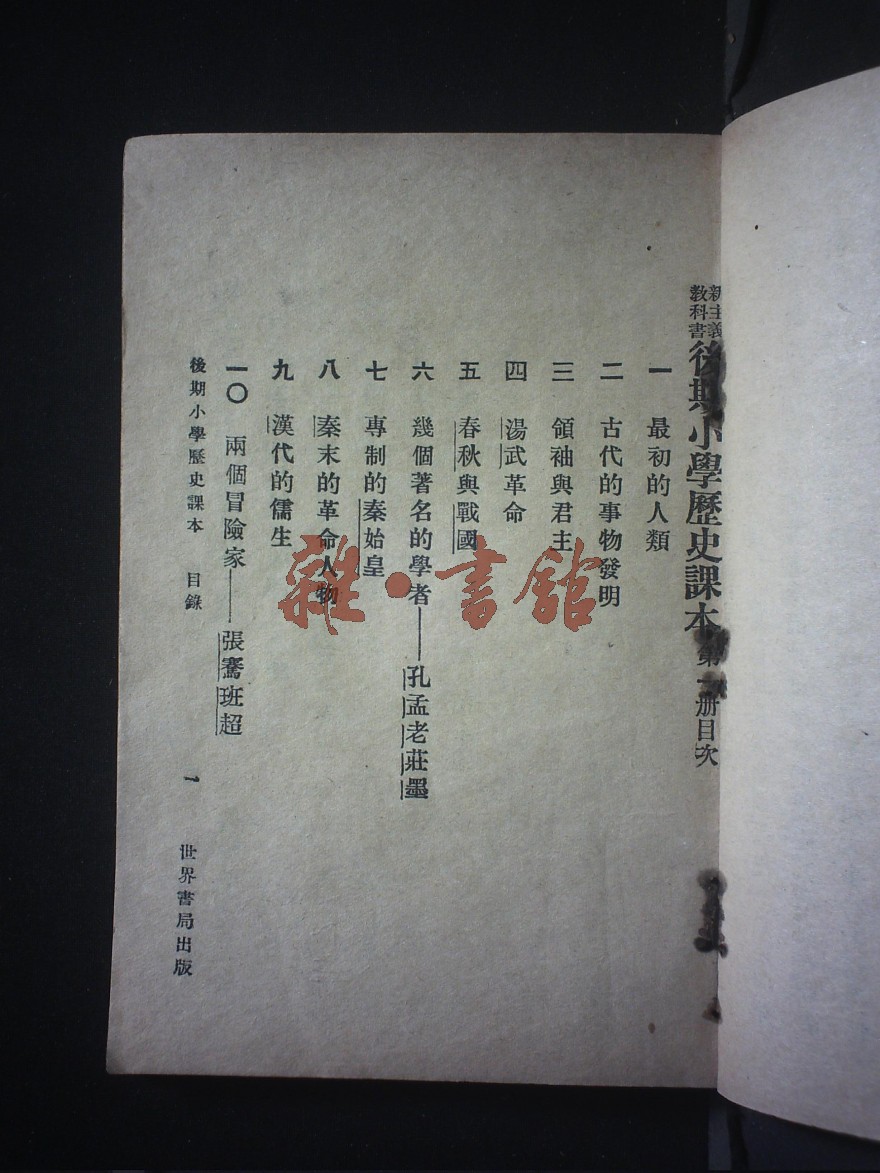 新主義教科書後期小學歷史課本第一册目次
一 最初的人類
二 古代的事物發明
三 領袖與君主
四 湯武革命
五 春秋與戰國
六 幾個著名的學者——孔孟老莊墨
七 專制的秦始皇
八 秦末的革命人物
九 漢代的儒生
一〇 兩個冒險家——張騫班超
後期小學歷史課本 目錄 一 世界書局出版
雜·書館